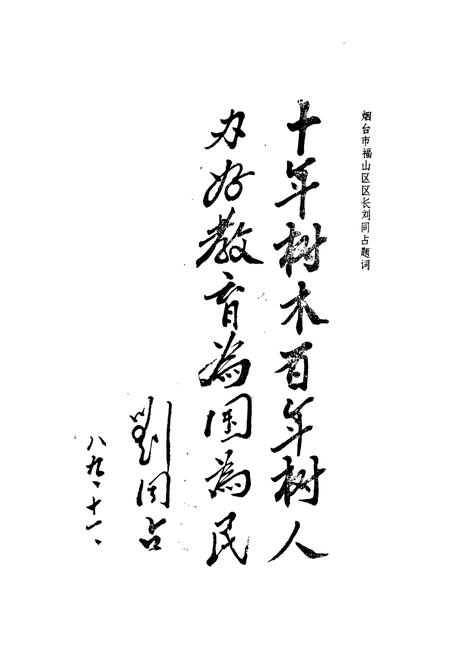 烟台市福山区区长刘同占题词
十年树木百年树人
办好教育為国為民
劉同占
八九、十一、